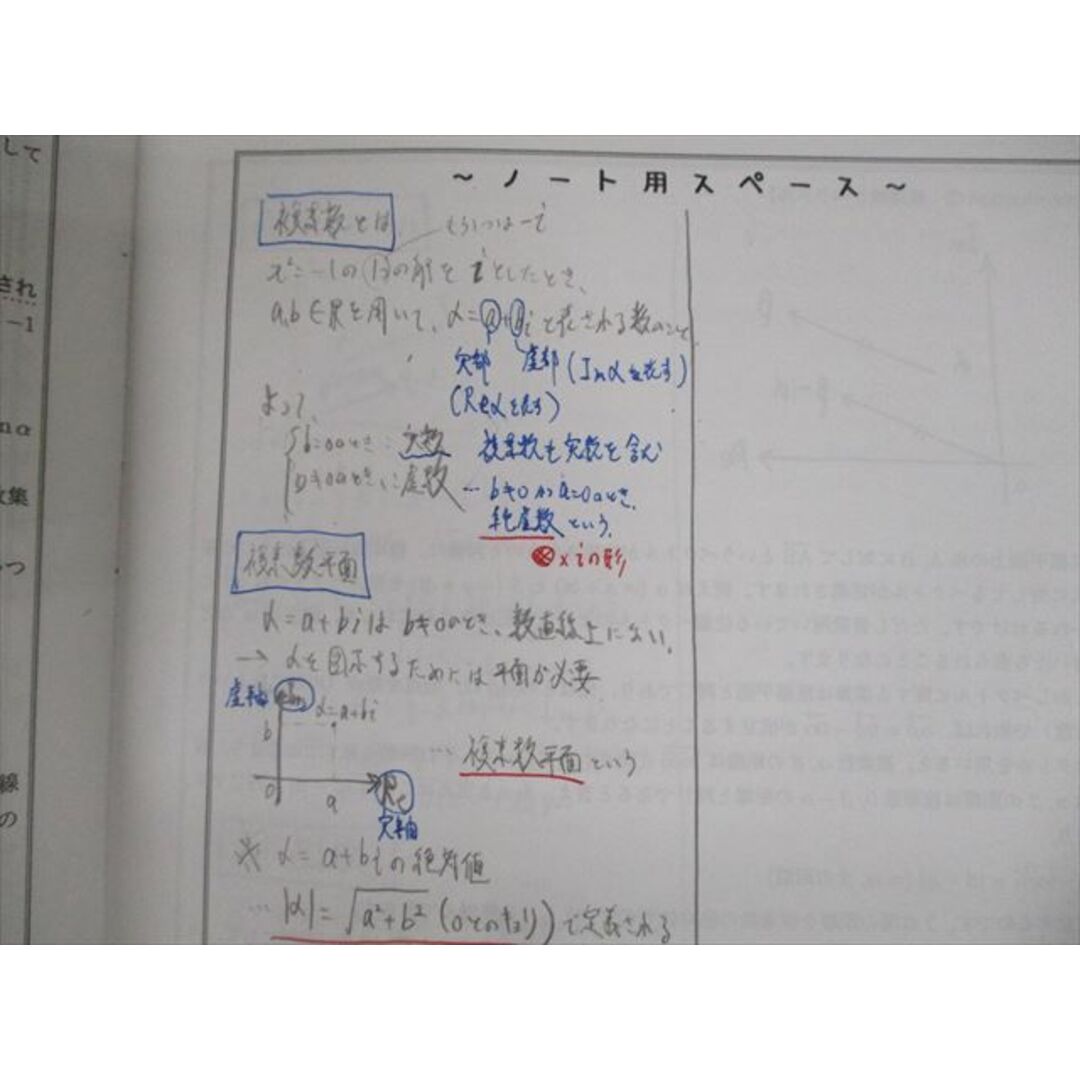 して
され
-1
nα
数集
つ
線
の
～ノート用スペース～
複素数とは
もう1つは-i
x²=-1の1つの解をiとしたとき、
a,b∈Rを用いて、α=a+biと表される数のこと
実部 虚部(Imαと表す)
(Reαと表す)
よって、
b=0のとき:実数 複素数も実数を含む
b≠0のとき:虚数 … b≠0かつa=0のとき、
純虚数という。
×iの形
複素数平面
α=a+biはb≠0のとき、数直線上にない。
→ αを図示するためには平面が必要
虚軸 Im
α=a+bi
b
… 複素数平面という
0 a Re
実軸
※ α=a+biの絶対値
… |α|=√a²+b² (0とのキョリ)で定義される